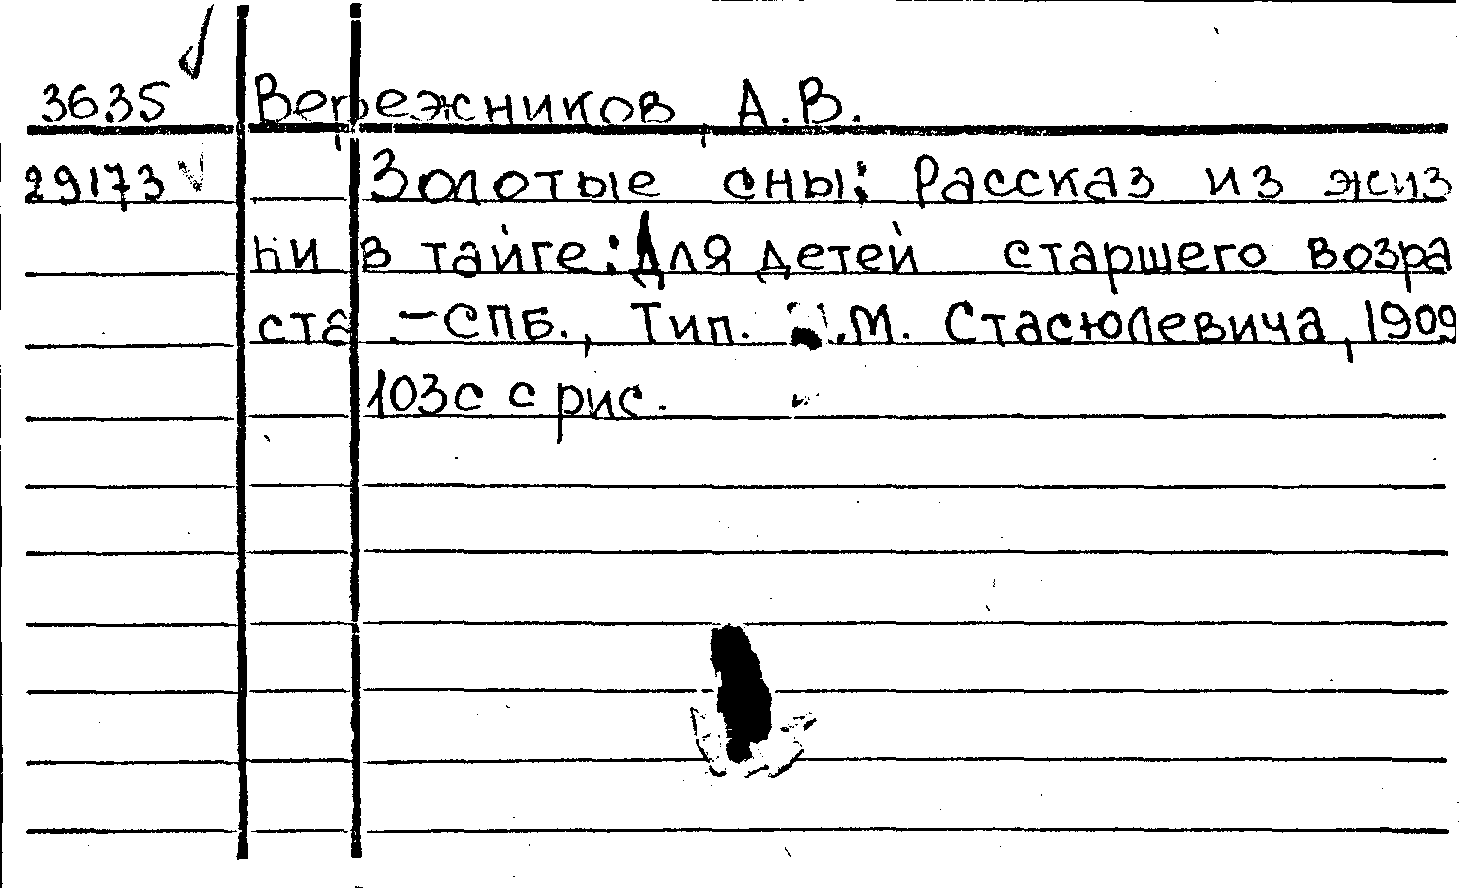 3635 Вережников, А.В.
29173 Золотые сны: Рассказ из жиз
ни в тайге: Для детей старшего возра
ста. - СПБ., Тип. .М. Стасюлевича, 1909
103с с рис.